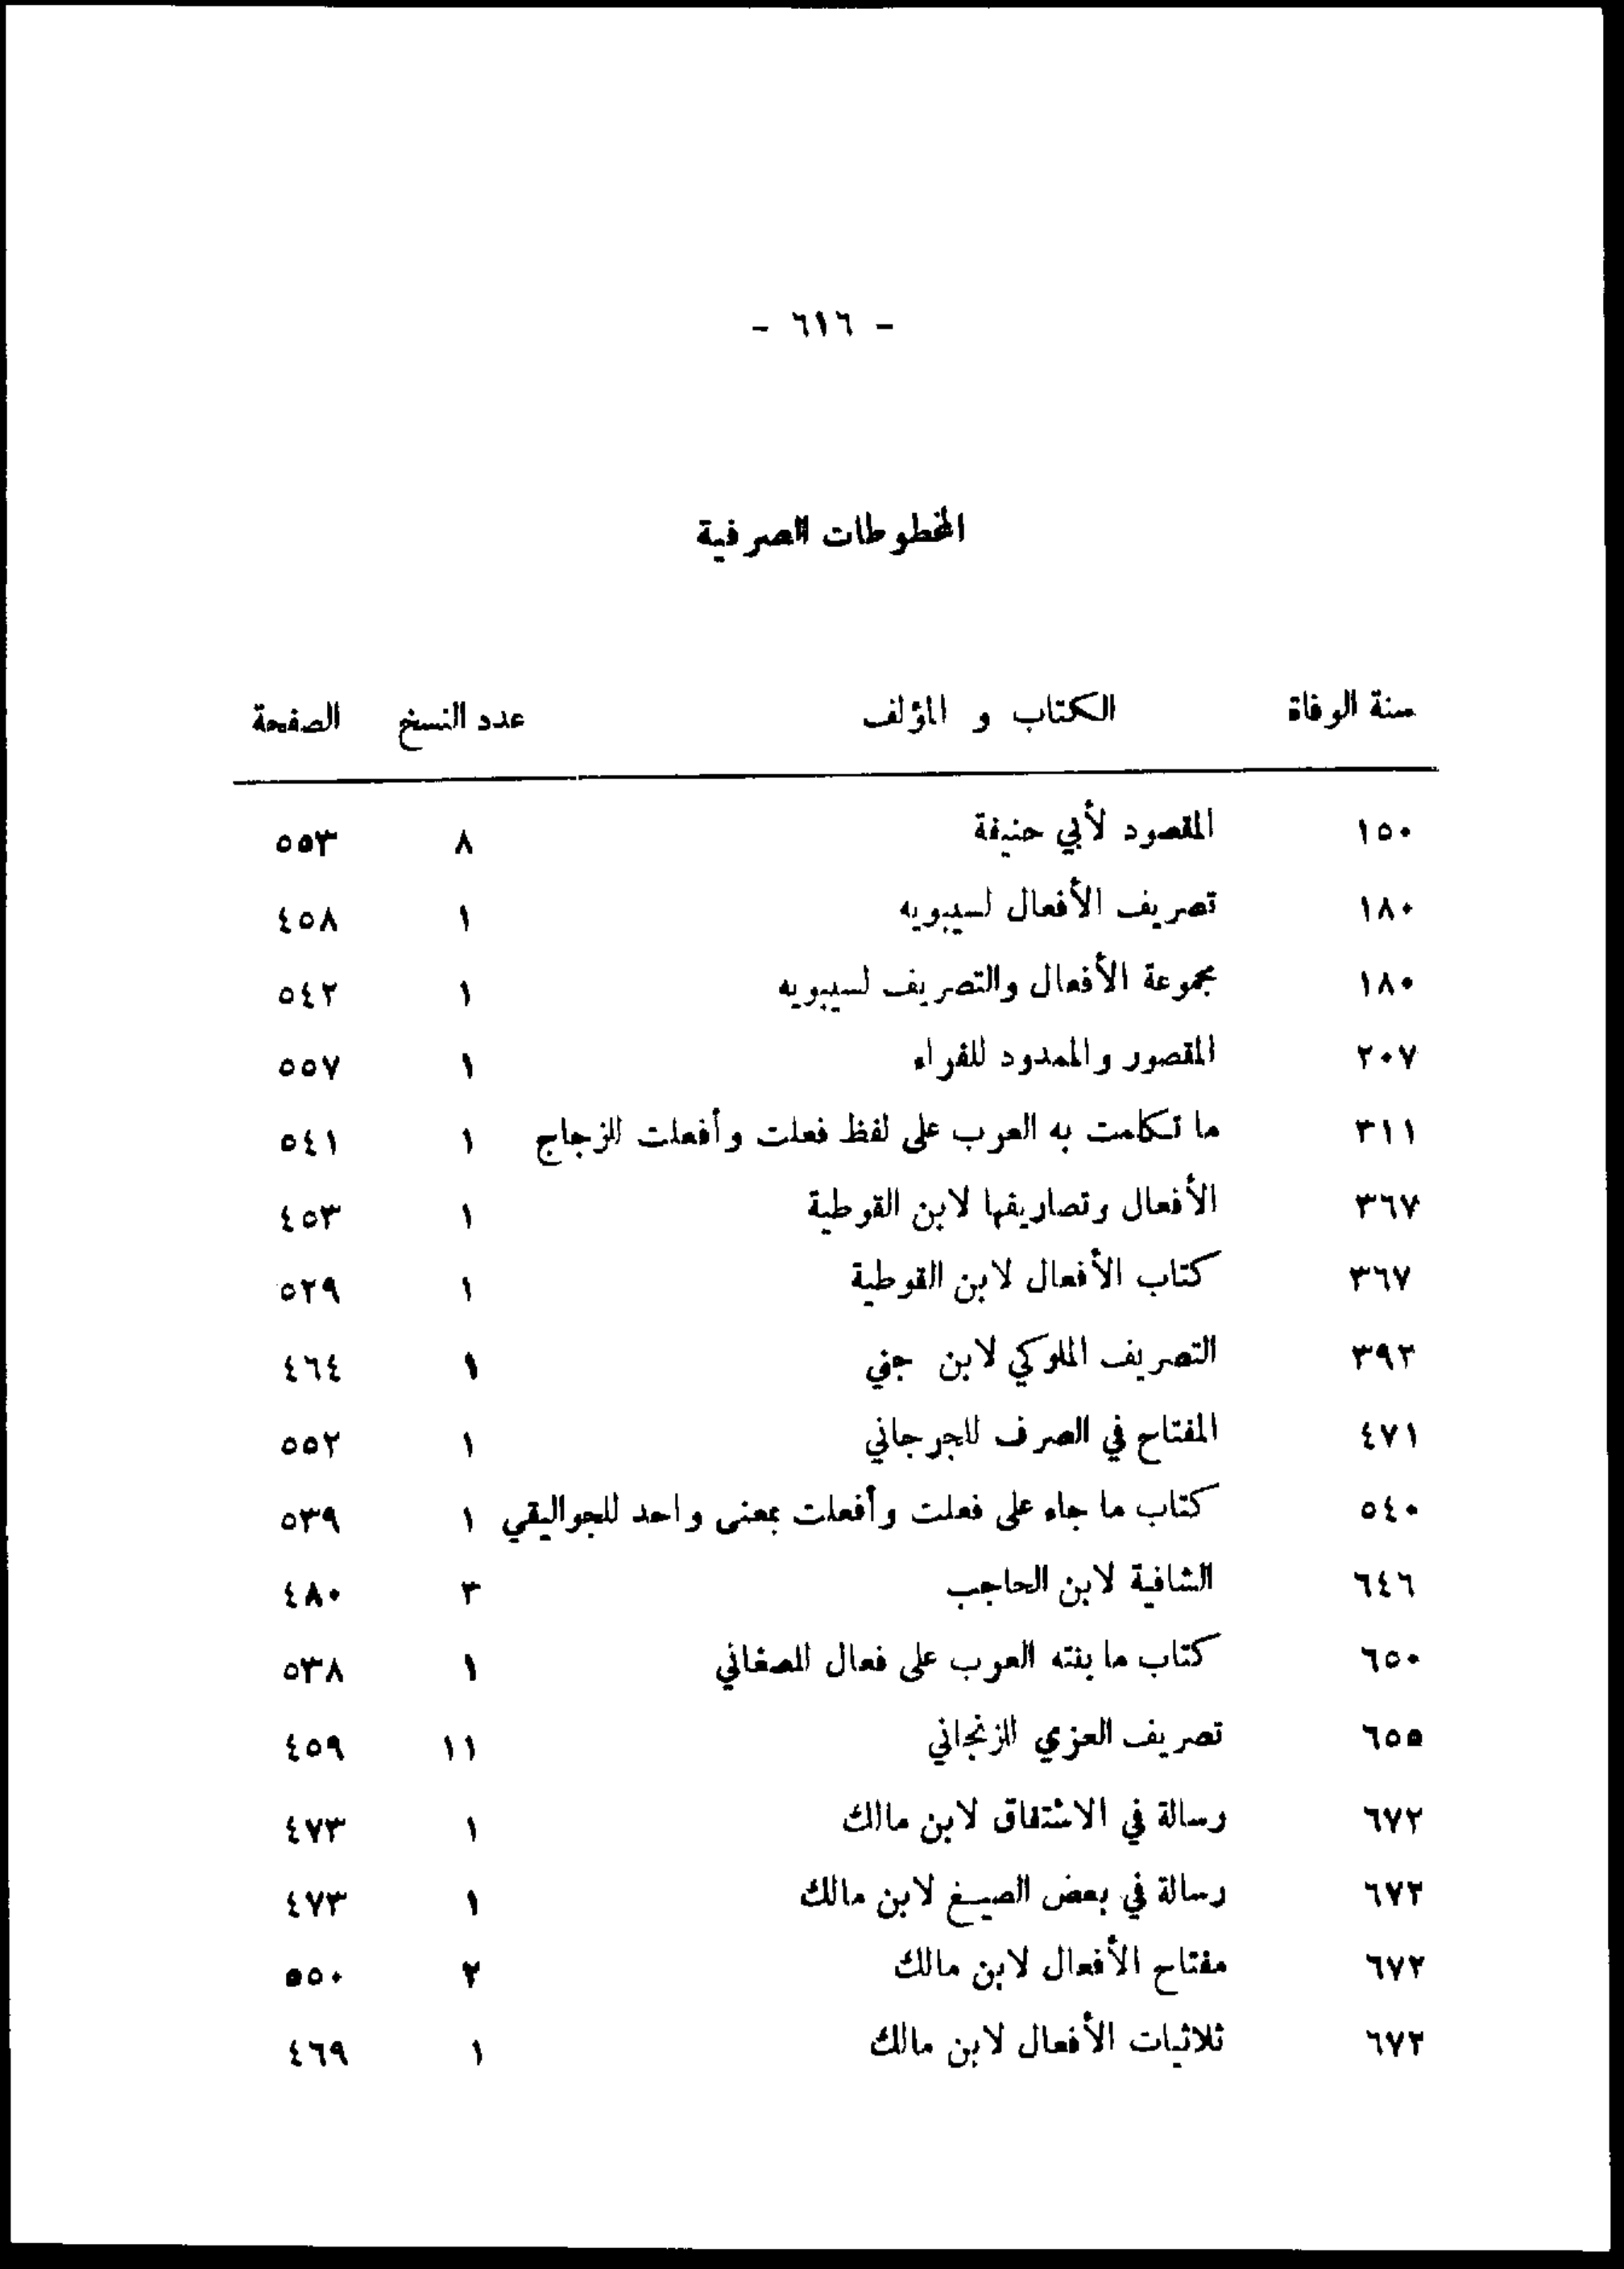 - ٦١٦ -
المخطوطات الصرفية
سنة الوفاة الكتاب و المؤلف عدد النسخ الصفحة
١٥٠ المقصود لأبي حنيفة ٨ ٥٥٣
١٨٠ تصريف الأفعال لسيبويه ١ ٤٥٨
١٨٠ مجموعة الأفعال والتصريف لسيبويه ١ ٥٤٢
٢٠٧ المقصور والممدود للفراء ١ ٥٥٧
٣١١ ما تكلمت به العرب على لفظ فعلت وأفعلت للزجاج ١ ٥٤١
٣٦٧ الأفعال وتصاريفها لابن القوطية ١ ٤٥٣
٣٦٧ كتاب الأفعال لابن القوطية ١ ٥٢٩
٣٩٢ التصريف الملوكي لابن جني ١ ٤٦٤
٤٧١ المفتاح في الصرف للجرجاني ١ ٥٥٢
٥٤٠ كتاب ما جاء على فعلت وأفعلت بمعنى واحد للجواليقي ١ ٥٣٩
٦٤٦ الشافية لابن الحاجب ٣ ٤٨٠
٦٥٠ كتاب ما بنته العرب على فعال للصغاني ١ ٥٣٨
٦٥٥ تصريف العزي للزنجاني ١١ ٤٥٩
٦٧٢ رسالة في الاشتقاق لابن مالك ١ ٤٧٣
٦٧٢ رسالة في بعض الصيغ لابن مالك ١ ٤٧٣
٦٧٢ مفتاح الأفعال لابن مالك ٢ ٥٥٠
٦٧٢ ثلاثيات الأفعال لابن مالك ١ ٤٦٩